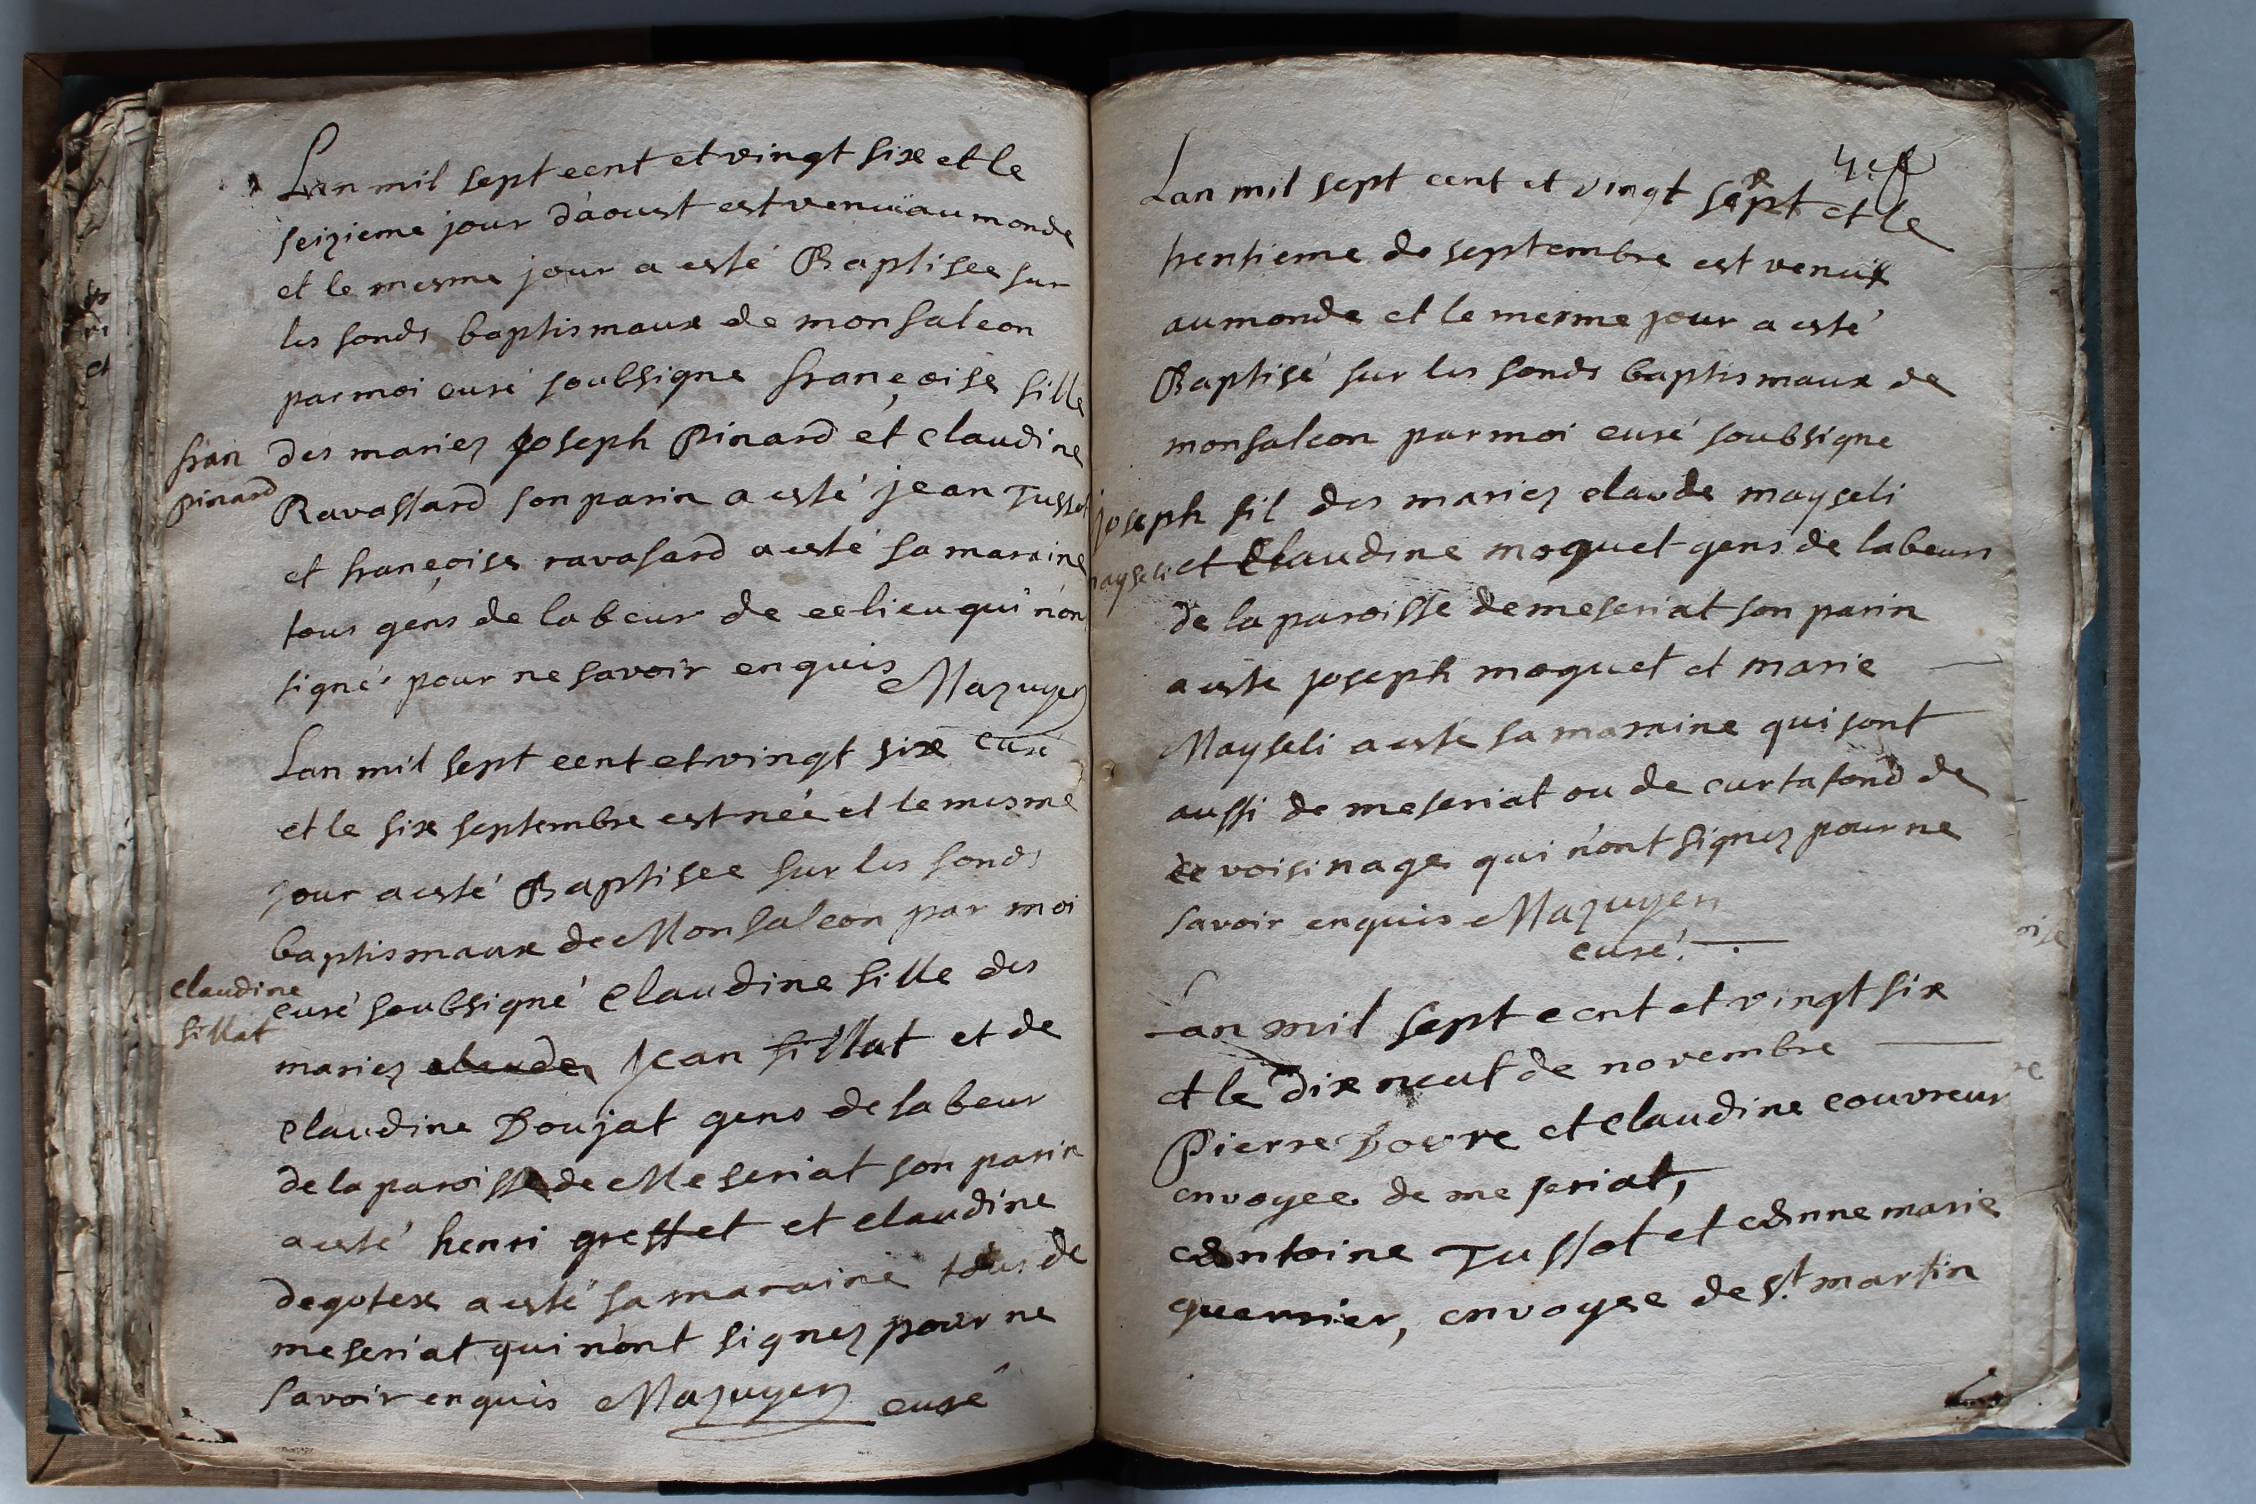 Lan mil sept cent et vingt six et le
seizieme jour d'aoust est venuë au monde
et le mesme jour a esté Baptisee sur
les fonds baptismaux de monfalcon
par moi curé soubsigne françoise fille
des mariez Joseph Pinard et claudine
fran
pinard
Ravassard son parin a esté jean Tussot
et françoise ravasard a esté sa maraine
tous gens de labeur de ce lieu qui n'on
signé pour ne savoir enquis Mazuyer
curé
Lan mil sept cent et vingt six
et le six septembre est née et le mesme
jour a esté Baptisee sur les fonds
baptismaux de Monfalcon par moi
claudine
fillat
curé soubsigné Claudine fille des
mariez claude Jean fillat et de
Claudine Doujat gens de labeur
de la paroisse de Meseriat son parin
a esté henri greffet et claudine
degotex a esté sa maraine tous de
meseriat qui n'ont signez pour ne
savoir enquis Mazuyer curé
Lan mil sept cent et vingt sept et le
trentieme de septembre est venu
au monde et le mesme jour a esté
Baptisé sur les fonds baptismaux de
monfalcon par moi curé soubsigne
joseph fil des mariez claude mayseli
mayseli et Claudine moquet gens de labeurs
de la paroisse de meseriat son parin
a esté joseph moquet et marie
Mayseli a esté sa maraine qui sont
aussi de meseriat ou de curtafond de
ce voisinage qui n'ont signez pour ne
savoir enquis Mazuyer
curé.
Lan mil sept cent et vingt six
et le dix neuf de novembre
Pierre Dovre et Claudine couvreur
envoyee de meseriat,
antoine Tussot et anne marie
guerrier, envoyee de st. martin